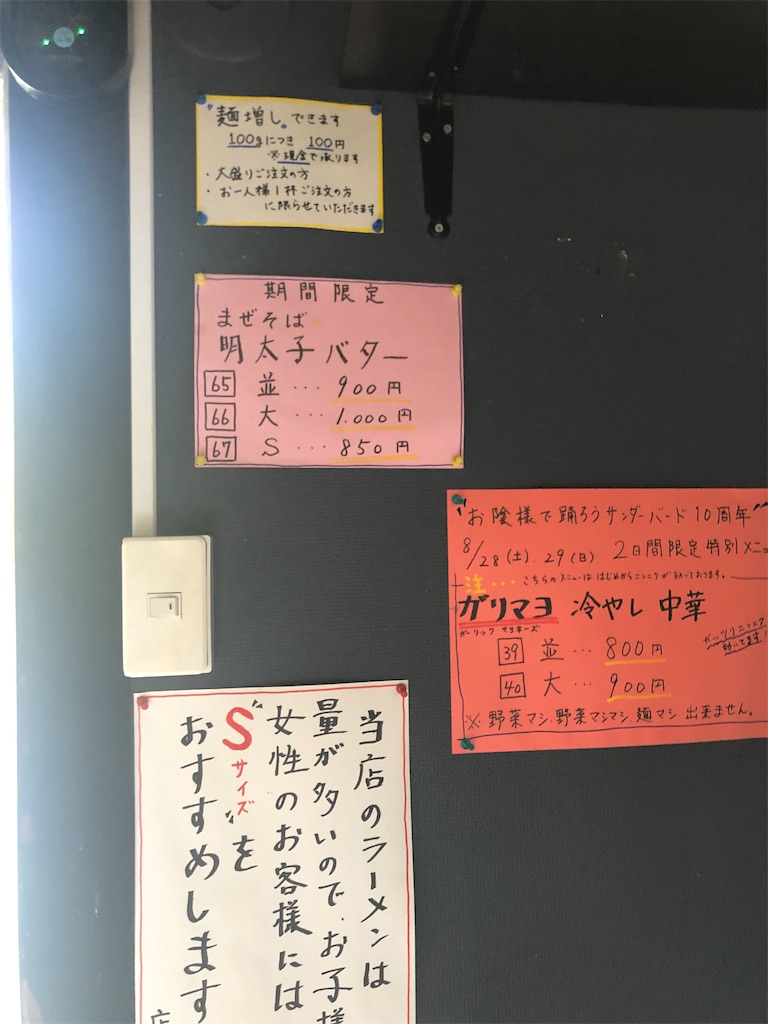 "麺増し"できます
100gにつき 100円
※現金で承ります
・大盛りご注文の方
・お一人様1杯ご注文の方
に限らせていただきます
期間限定
まぜそば
明太子バター
65 並 … 900円
66 大 … 1.000円
67 S … 850円
"お陰様で踊ろうサンダーバード10周年"
8/28(土).29(日) 2日間限定特別メニュ
注… こちらのメニューははじめからニンニクが効いております。
ガリマヨ 冷やし中華
ガーリックマヨネーズ
ガッツリニンニク
効いてます!
39 並 … 800円
40 大 … 900円
※野菜マシ.野菜マシマシ.麺マシ出来ません。
当店のラーメンは
量が多いので、お子様
女性のお客様には
"Sサイズ"を
おすすめします
店